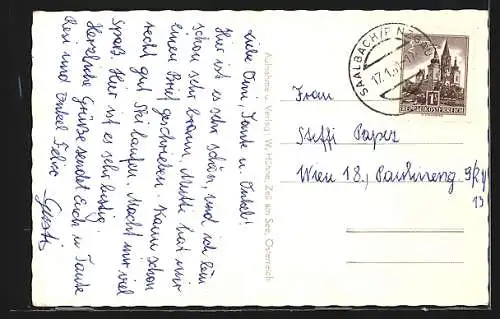 Liebe Omi, Tante u. Onkel!
Hier ist es sehr schön, und ich bin
schon sehr braun. Mutti hat mir
einen Brief geschrieben. Kann schon
recht gut Ski laufen. Macht mir viel
Spaß. Hier ist es sehr lustig.
Herzliche Grüße sendet Euch u. Tante
Resi und Onkel Felix Gusti
Aufnahme u. Verlag: W. Hühne, Zell am See, Österreich
SAALBACH/P
17.1.
REPUBLIK ÖSTERREICH
Frau
Steffi Paper
Wien 18.,
13